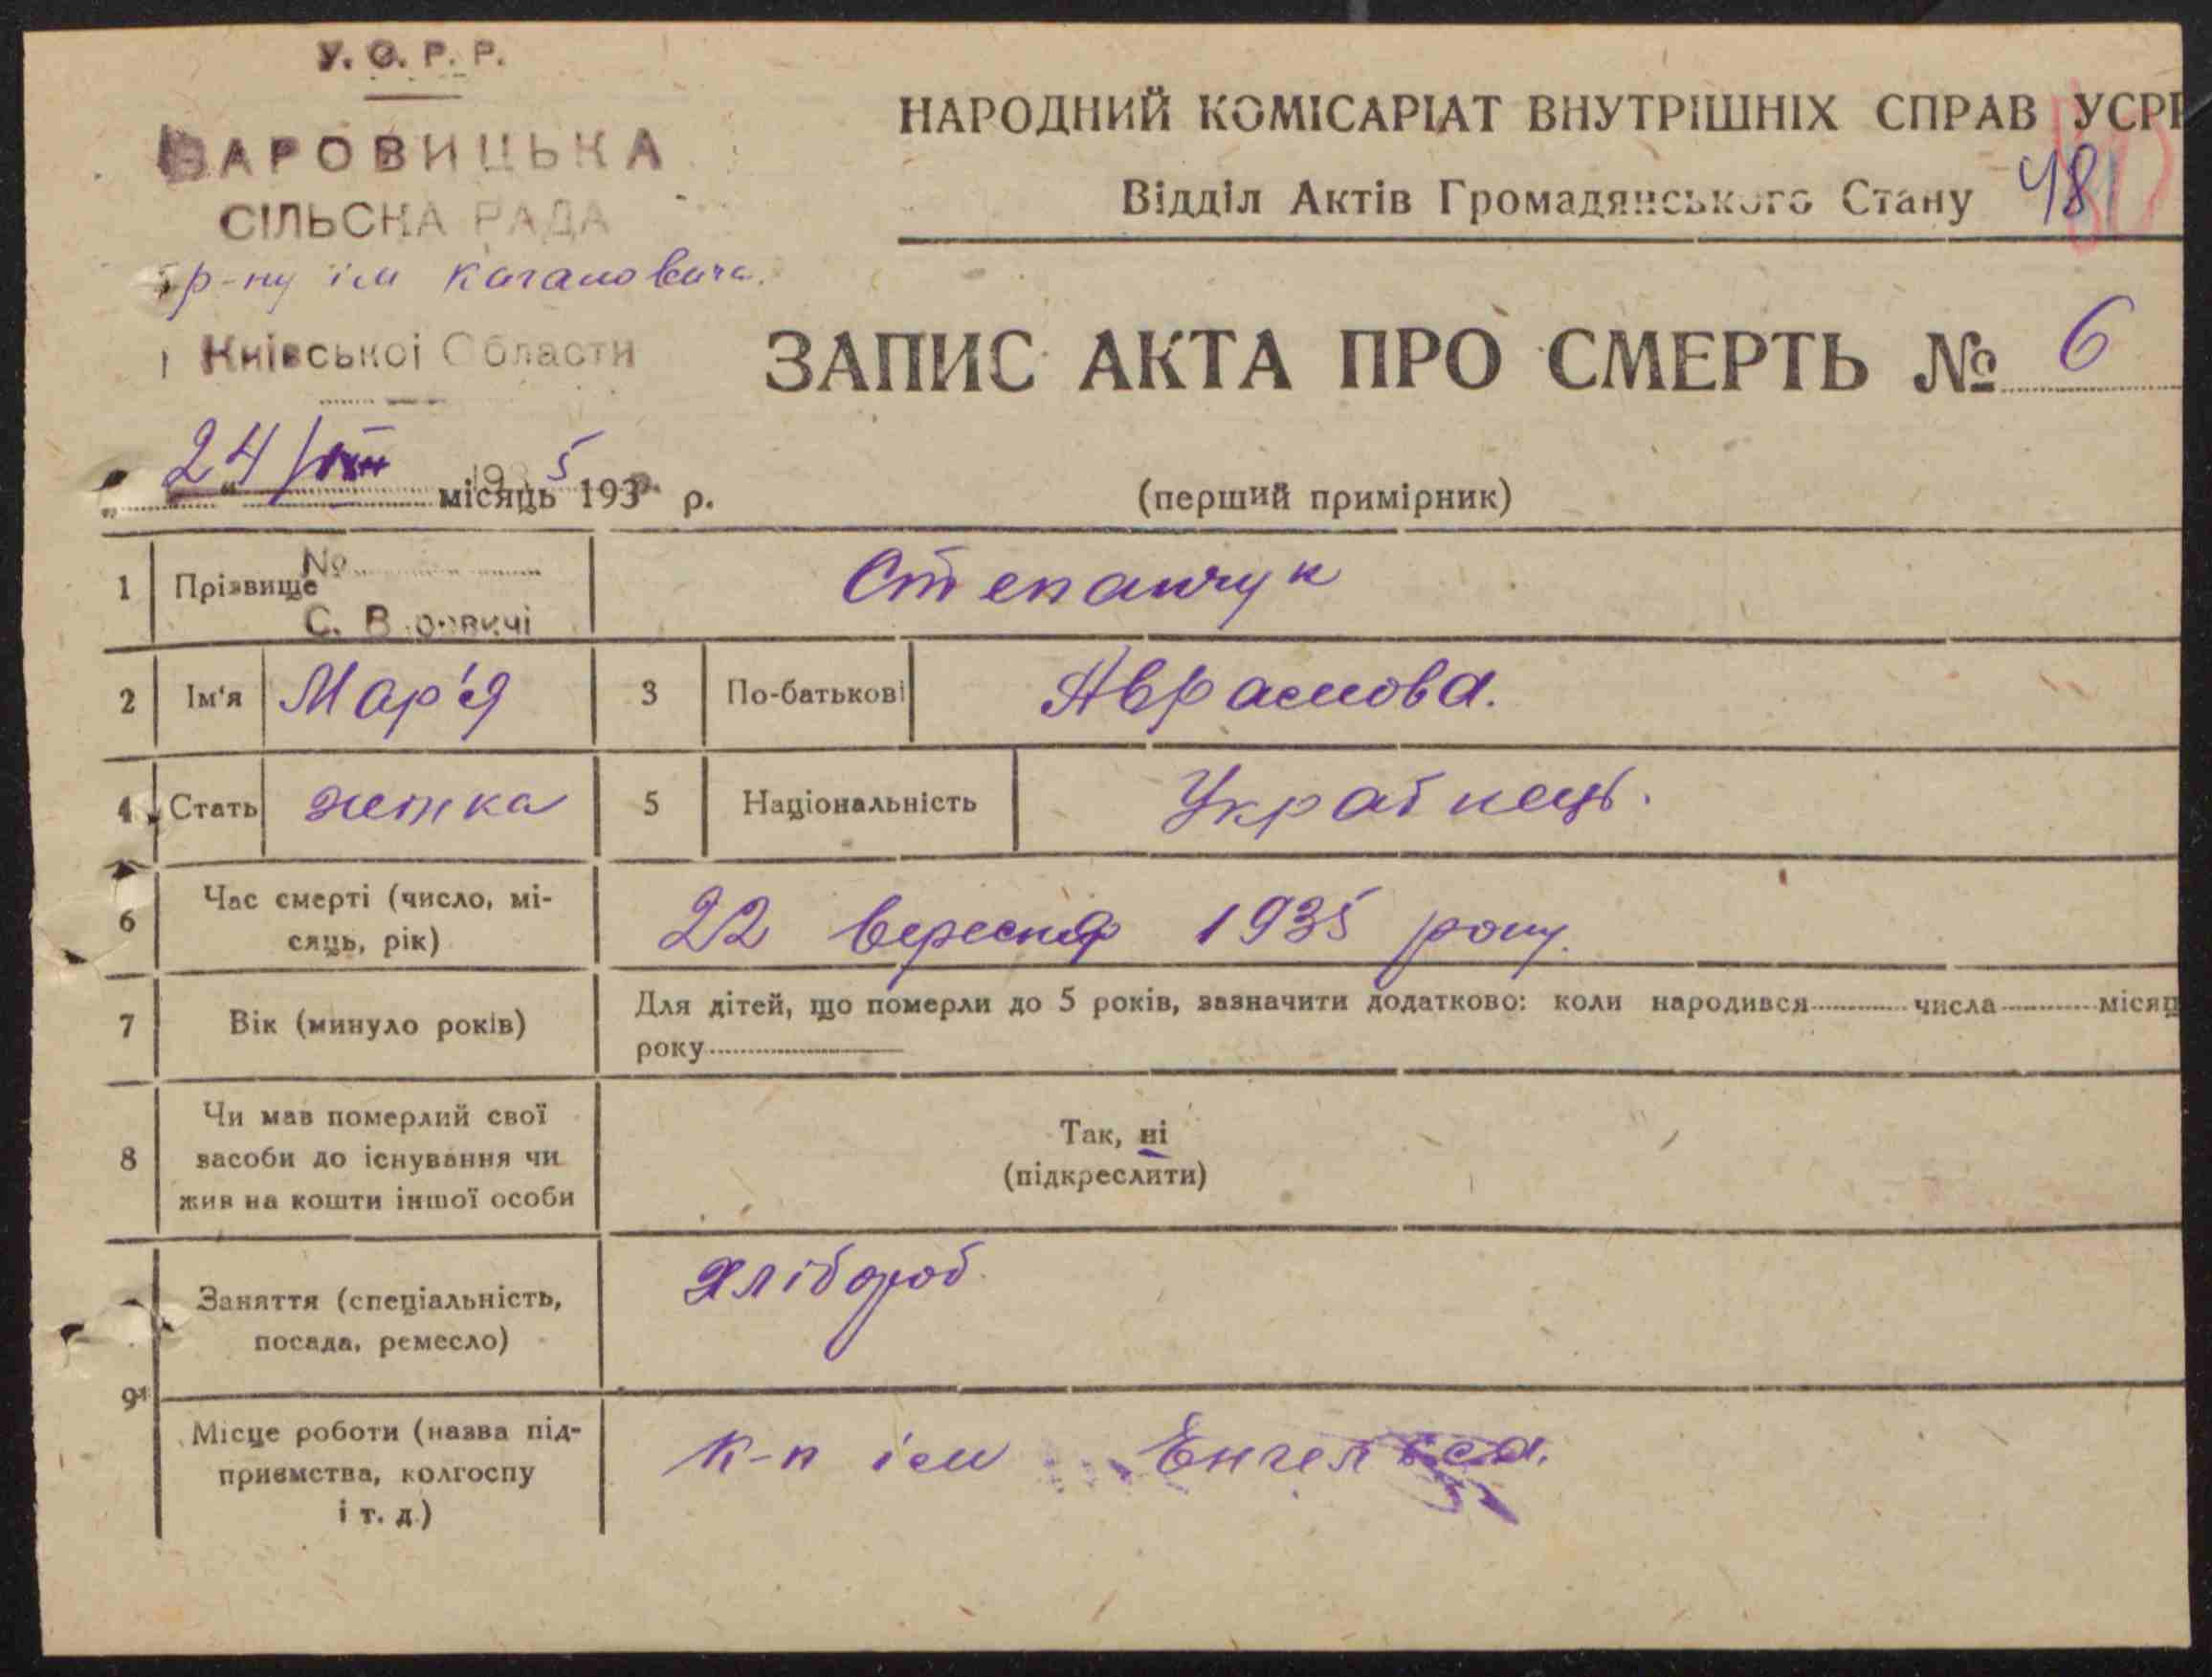 У.С.Р.Р.
ВАРОВИЦЬКА
СІЛЬСКА РАДА
р-ну ім Кагановича.
Київської Области
НАРОДНИЙ КОМІСАРІАТ ВНУТРІШНІХ СПРАВ УСРР
Відділ Актів Громадянського Стану 481
ЗАПИС АКТА ПРО СМЕРТЬ № 6
24/ місяць 1935 р.
(перший примірник)
1 Прізвище Степанчук
№
С. Варовичі
2 Ім'я Мар'я 3 По-батькові Аврамова.
4 Стать жінка 5 Національність Українець.
6 Час смерті (число, мі-
сяць, рік) 22 вересня 1935 року.
7 Вік (минуло років) Для дітей, що померли до 5 років, зазначити додатково: коли народився числа місяц
року
8 Чи мав померлий свої
засоби до існування чи
жив на кошти іншої особи
Так, ні
(підкреслити)
9 Заняття (спеціальність,
посада, ремесло) Хлібороб
Місце роботи (назва під-
приємства, колгоспу
і т. д.) к-п ім Енгельса.